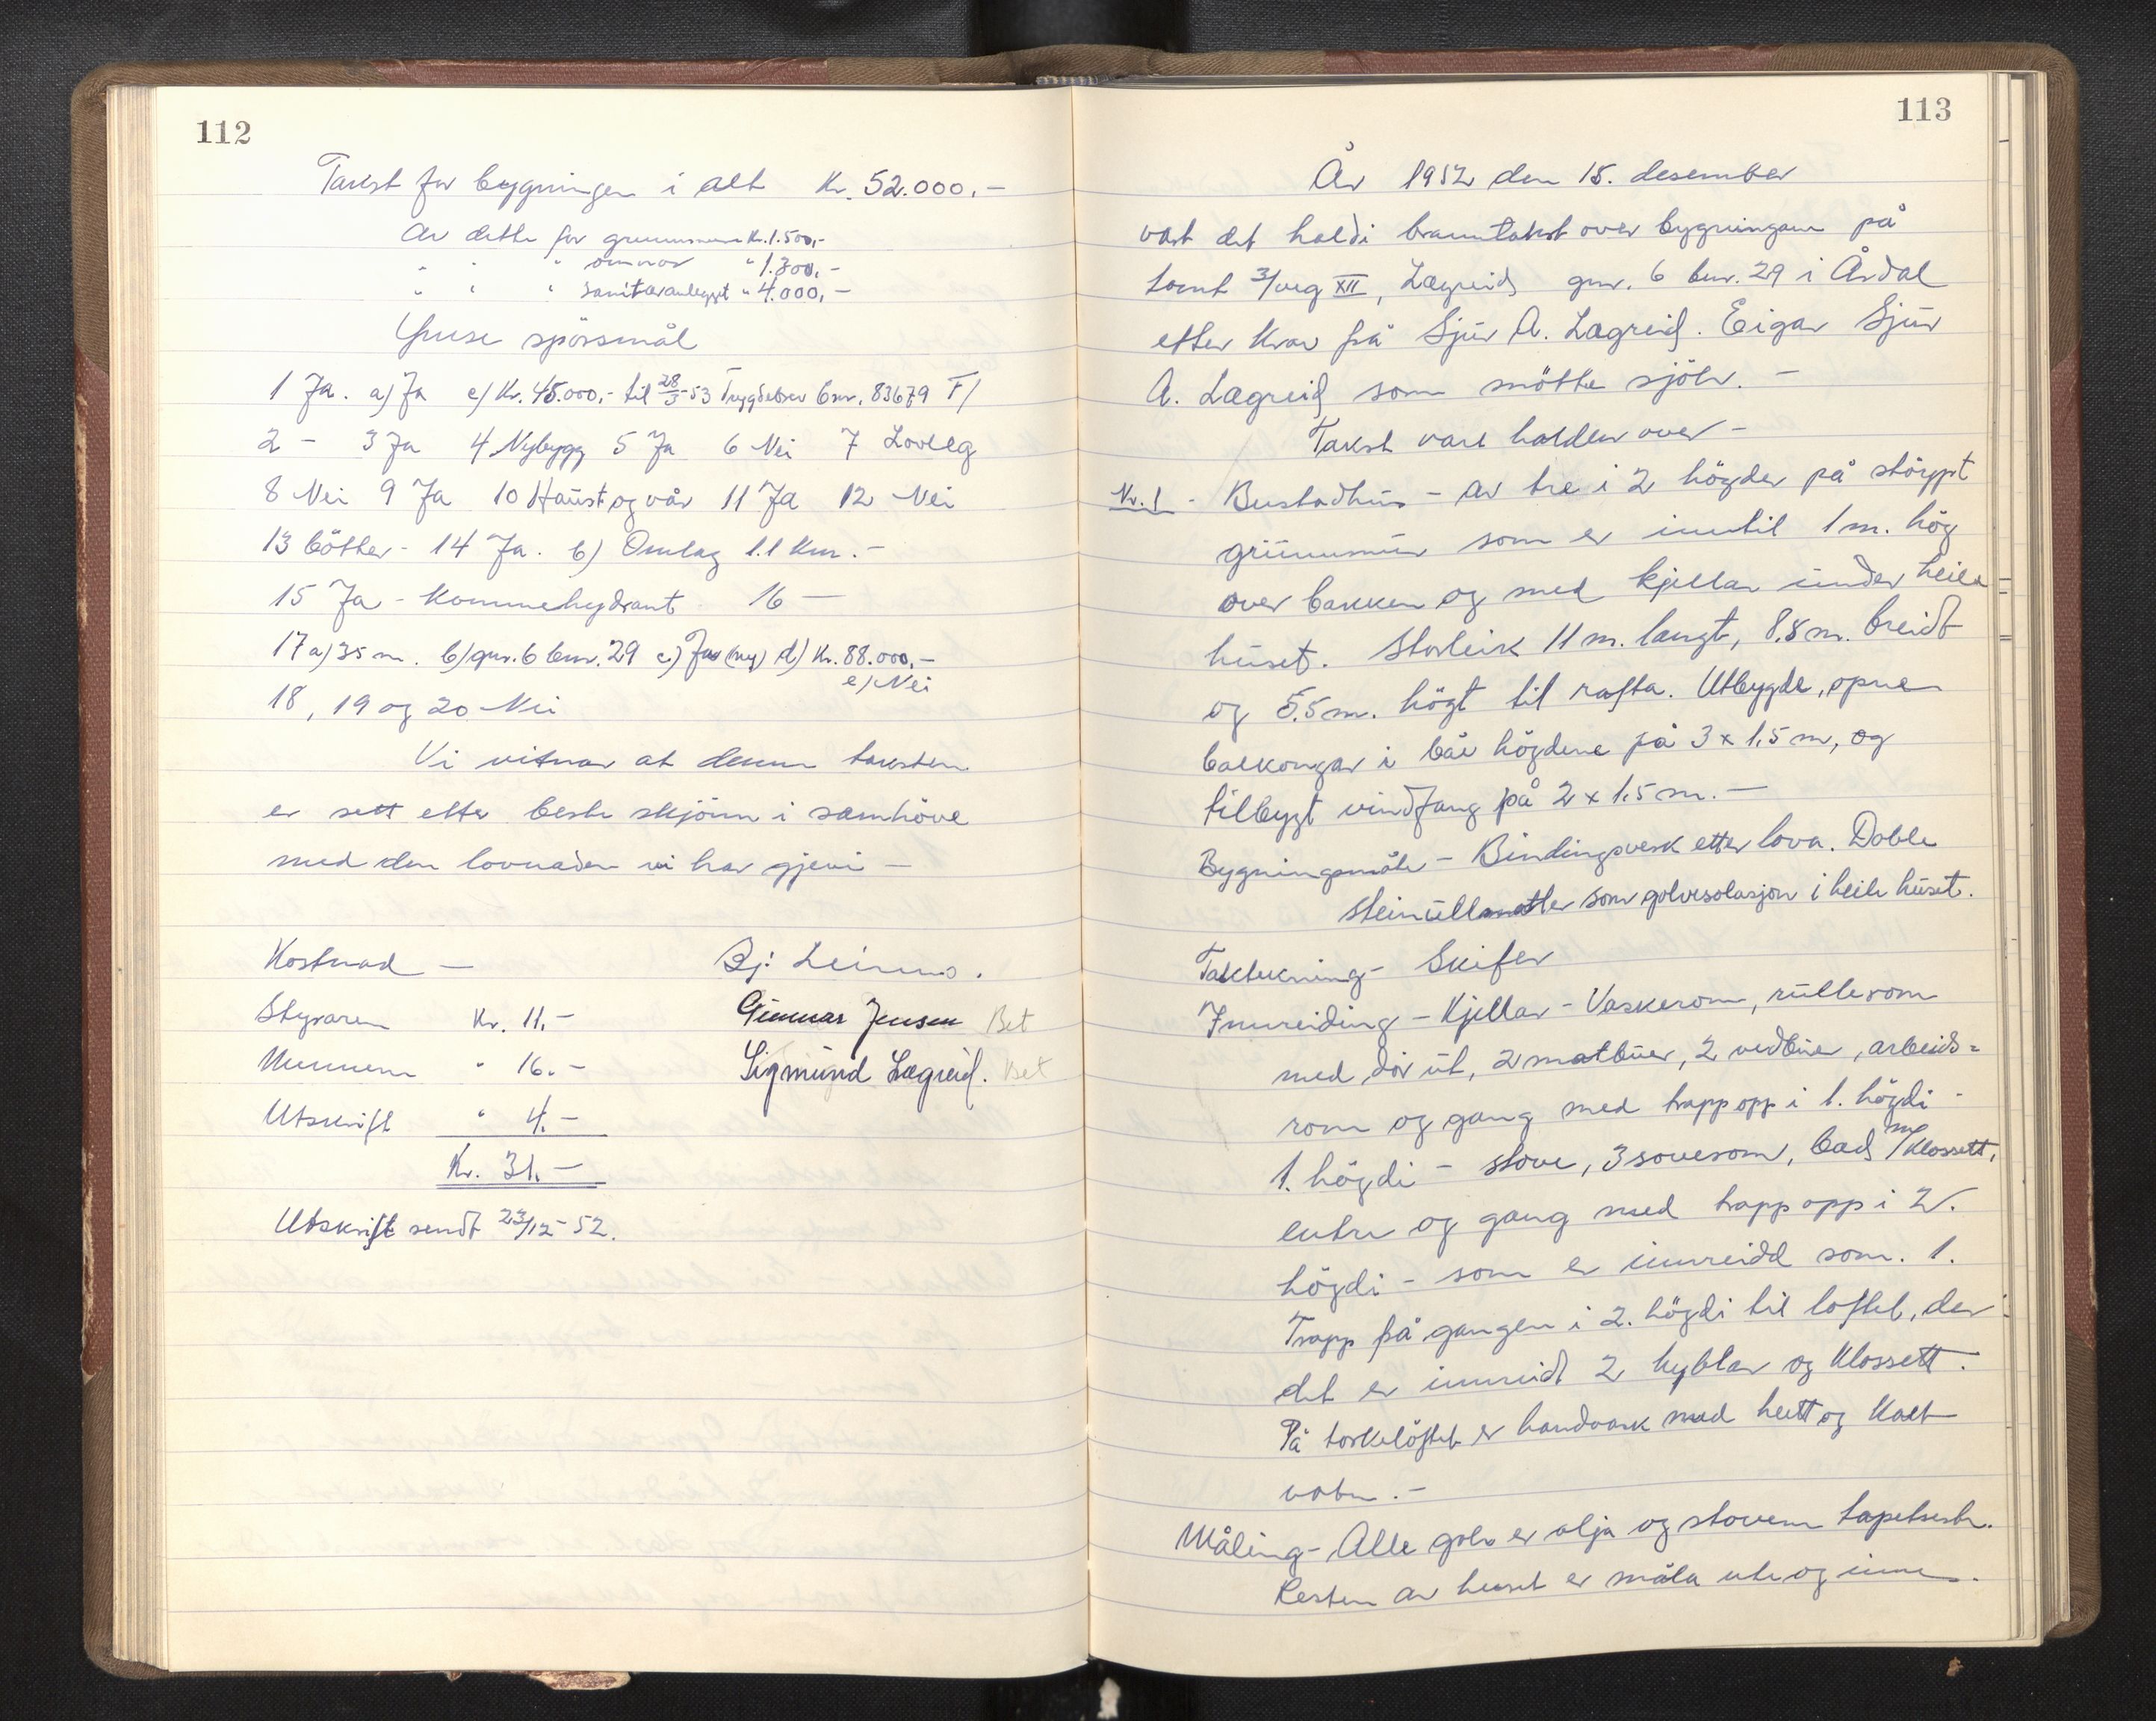 112
Takst for bygningen i alt Kr. 52.000,-
Av dette for grunnmuren Kr. 1.500,-
" " " omnar " 1.300,-
" " " sanitæranlegget " 4.000,-
Ymse spörsmål
1 Ja. a) Ja e) Kr. 45.000,- til 28/3-53 Trygdebrev bnr. 83679 F/
2 - 3 Ja 4 Nybygg 5 Ja 6 Nei 7 Lovleg
8 Nei 9 Ja 10 Haust og vår 11 Ja 12 Nei
13 bötter - 14 Ja. b) Omlag 1.1 km. -
15 Ja - Kommehydrant 16 —
17 a) 35 m. b) gnr. 6 bnr. 29 c) (ny) d) Kr. 88.000,-
e) Nei
18, 19 og 20 Nei
Vi vitnar at denne taksten
er sett etter beste skjönn i samhöve
med den lovnaden vi har gjevi -
Kostnad —
Styraren Kr. 11.-
" 16.-
Utskrift " 4.-
Kr. 31.-
Utskrift sendt 23/12-52.
Bj:
Gunnar Jensen Bet
Sigmund Lægreid. Bet
113
År 1952 den 15. desember
vart det haldi branntakst over bygningane på
tomt 3/veg XII, Lægreid, gnr. 6 bnr. 29 i Årdal
etter krav frå Sjur A. Lægreid. Eigar Sjur
A. Lægreid som mötte sjölv. -
Takst vart halden over -
Nr. 1 - Bustadhus - av tre i 2 högder på stöypt
grunnmur som er inntil 1 m. hög
over bakken og med kjellar under heile
huset. Storleik 11 m. langt, 8,8 m. breidt
og 5.5 m. högt til rafta. Utbygde, opne
balkongar i båe högdene på 3 x 1.5 m, og
tilbygt vindfang på 2 x 1.5 m. -
Bygningsmåte - Bindingsverk etter lova. Doble
steinullmatter som golvisolasjon i heile huset.
Taktekning - Skifer
Innreiding - Kjellar - Vaskerom, rullerom
med dör ut, 2 matbuer, 2 vedbuer, arbeids=
rom og gang med trapp opp i 1. högdi -
1. högdi - stove, 3 soverom, bad m/klossett,
entre og gang med trapp opp i 2.
högdi - som er innreidd som 1.
Trapp frå gangen i 2. högdi til loftet, der
det er innreidt 2 hyblar og klossett.
På torkeloftet er handvask med heitt og kalt
vatn. -
Måling - Alle golv er olja og stovene tapetserte.
Resten av huset er måla ute og inne.